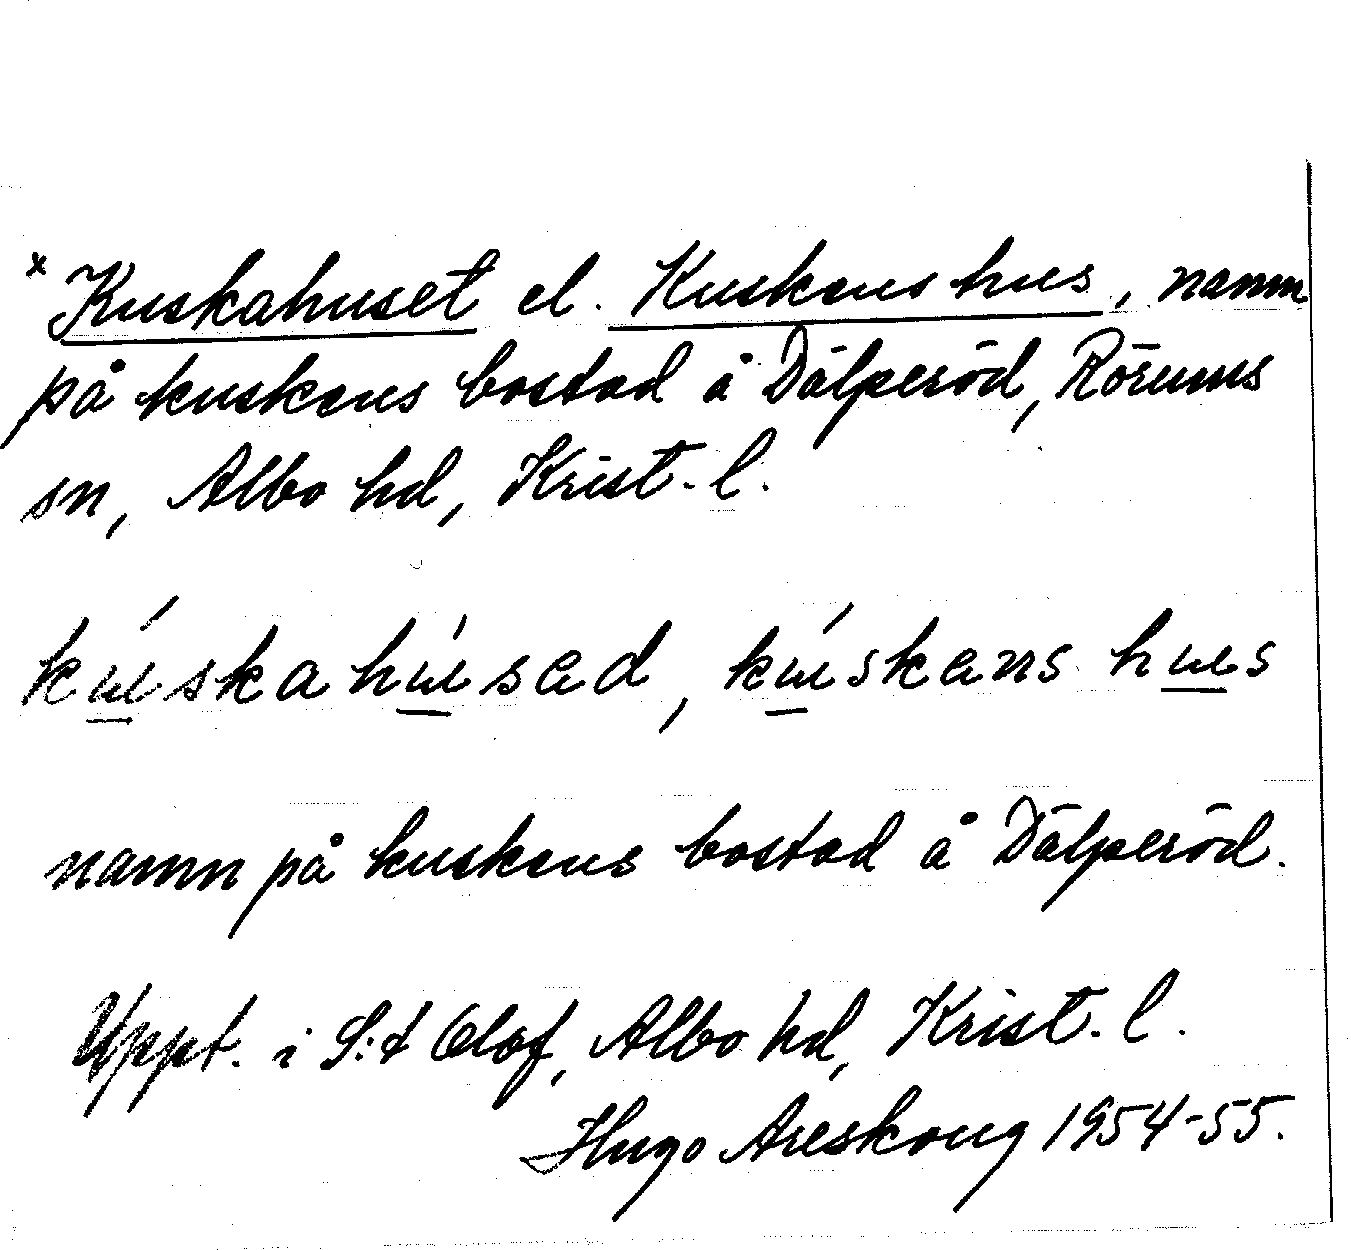 x Kuskahuset el. Kuskens hus, namn
på kuskens bostad å Dälperöd, Rörums
sn, Albo hd, Krist. l.
kúskahúsed, kúskens hus
namn på kuskens bostad å Dälperöd.
Uppt. i S:t Olof, Albo hd, Krist. l.
Hugo Areskoug 1954-55.